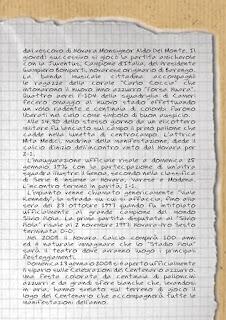 dal vescovo di Novara Monsignor Aldo Del Monte. Il
giovedì successivo si giocò la partita amichevole
con la Juventus, Campione d'Italia, del Presidente
Giampiero Boniperti, novarese originario di Barengo.
La banda musicale cittadina accompagnò
le ragazze della corale "Carlo Coccia" che
intonarono il nuovo inno azzurro "Forza Nuara".
Quattro aerei F-104 della squadriglia di Cameri
fecero omaggio al nuovo stadio effettuando
un volo radente e centinaia di colombi furono
liberati nel cielo come simbolo di buon auspicio.
Alle 14.30 dello stesso giorno da un elicottero
militare fu lanciato sul campo il primo pallone che
cadde nella lunetta di centrocampo. L'attrice
Mita Medici, madrina della manifestazione, diede il
calcio d'inizio dell'incontro vinto dal Novara per
2-1.
L'inaugurazione ufficiale risale a domenica 25
gennaio 1976 con la partecipazione di un'altra
squadra illustre il Genoa, secondo nella classifica
di Serie B insieme a Novara, Varese e Modena.
L'incontro terminò in parità, 1-1.
L'impianto venne chiamato genericamente "Viale
Kennedy", la strada su cui si affaccia, fino alla
sera del 23 ottobre 1997 quando fu intitolato
ufficialmente al grande campione del mondo
Silvio Piola. La prima partita disputata al "Silvio
Piola" risale al 2 novembre 1997: Novara-Pro Sesto
terminata 0-0.
Nel 2008 il Novara Calcio compirà 100 anni
ed è naturale immaginare che lo "Stadio Piola"
sarà il teatro dove avranno luogo i principali
festeggiamenti.
Domenica 13 gennaio 2008 si è aperto ufficialmente
il sipario sulle Celebrazioni del Centenario azzurro.
Una festa colorata da centinaia di palloncini
azzurri e da grandi sfere bianche che, levandosi
in aria, hanno svelato sul terreno di gioco il
logo del Centenario che accompagnerà tutte le
manifestazioni dell'anno.